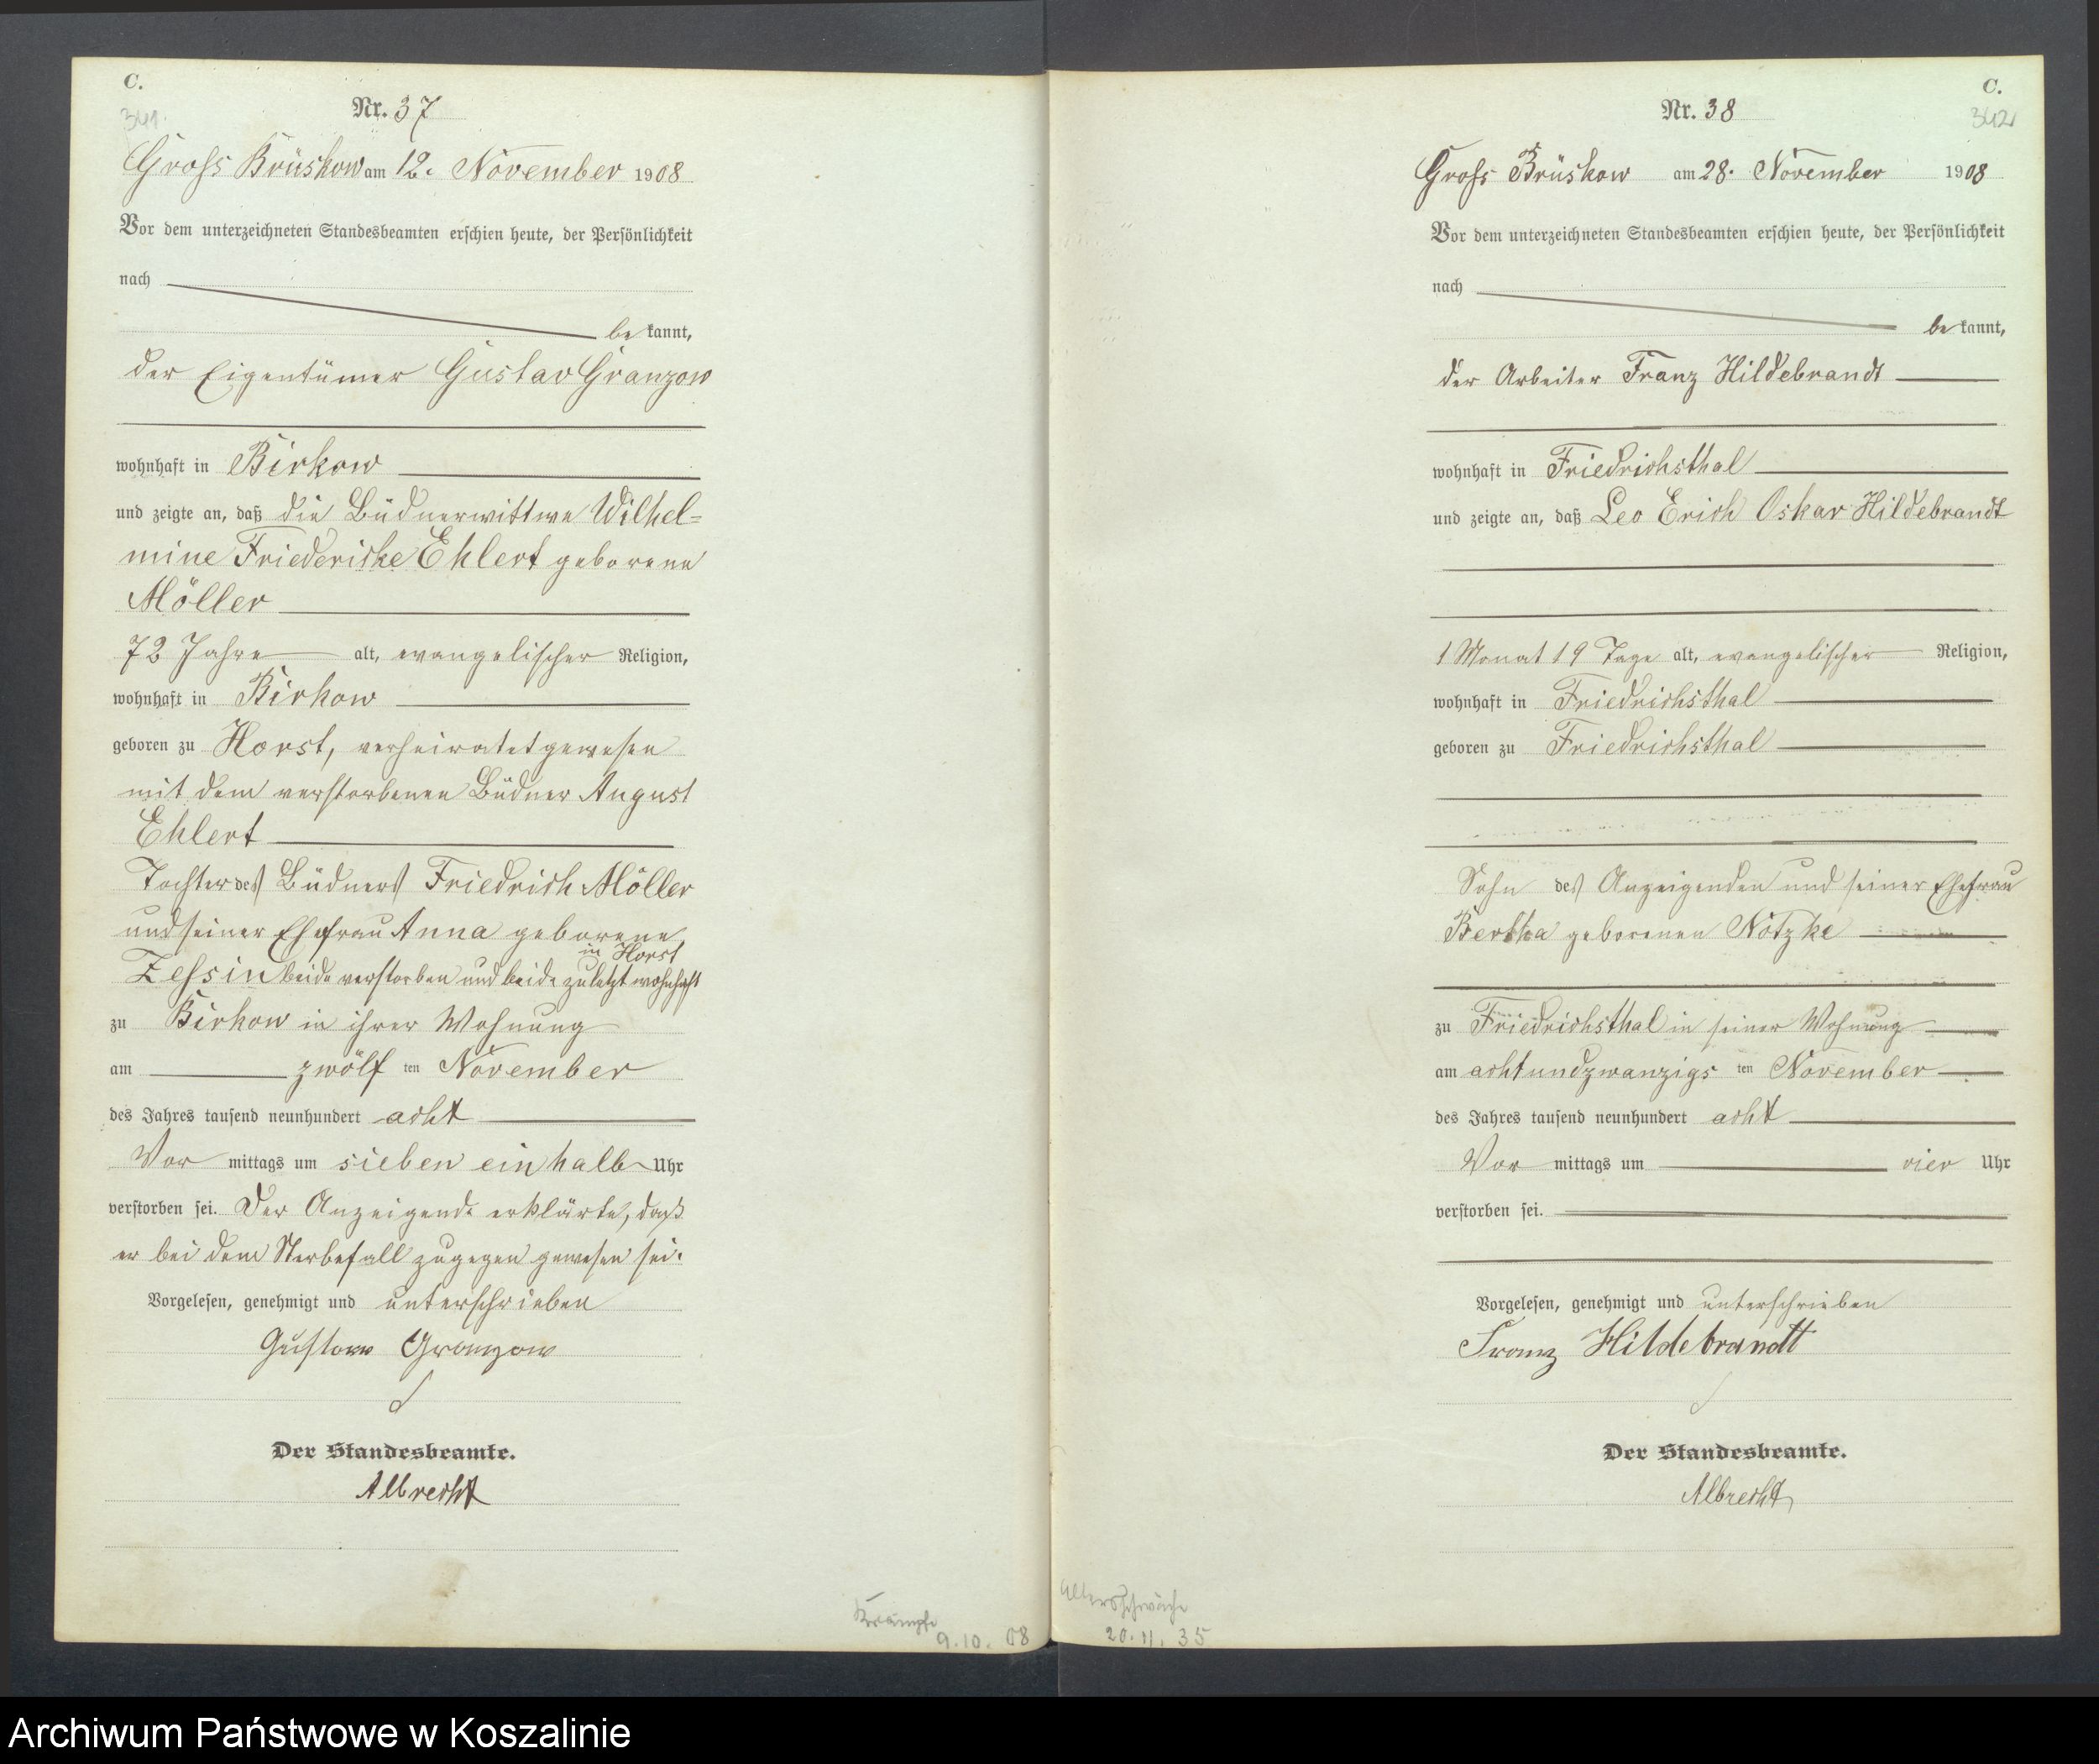 C.
341.
Nr. 37
Gross Brüskow am 12. November 1908
Vor dem unterzeichneten Standesbeamten erschien heute, der Persönlichkeit
nach
bekannt,
der Eigentümer Gustav Granzow
wohnhaft in Birkow
und zeigte an, daß die Büdnerwittwe Wilhel=
mine Friedericke Ehlert geborene
Möller
72 Jahre alt, evangelischer Religion,
wohnhaft in Birkow
geboren zu Horst, verheiratet gewesen
mit dem verstorbenen Büdner August
Ehlert
Tochter des Büdners Friedrich Möller
und seiner Ehefrau Anna geborene
in Horst
Zessin beide verstorben und beide zuletzt wohnhaft
zu Birkow in ihrer Wohnung
am zwölf ten November
des Jahres tausend neunhundert acht
Vor mittags um sieben einhalb Uhr
verstorben sei. Der Anzeigende erklärte, daß
er bei dem Sterbefall zugegen gewesen sei.
Vorgelesen, genehmigt und unterschrieben
Gustav Granzow
Der Standesbeamte.
Albrecht
Krämpfe
9.10. 08
C.
342
Nr. 38
Gross Brüskow am 28. November 1908
Vor dem unterzeichneten Standesbeamten erschien heute, der Persönlichkeit
nach
bekannt,
der Arbeiter Franz Hildebrandt
wohnhaft in Friedrichsthal
und zeigte an, daß Leo Erich Oskar Hildebrandt
1 Monat 19 Tage alt, evangelischer Religion,
wohnhaft in Friedrichsthal
geboren zu Friedrichsthal
Sohn des Anzeigenden und seiner Ehefrau
Bertha geborenen Nötzke
zu Friedrichsthal in seiner Wohnung
am achtundzwanzigs ten November
des Jahres tausend neunhundert acht
Vor mittags um vier Uhr
verstorben sei.
Vorgelesen, genehmigt und unterschrieben
Franz Hildebrandt
Der Standesbeamte.
Albrecht
Altersschwäche
20.11.35
Archiwum Państwowe w Koszalinie